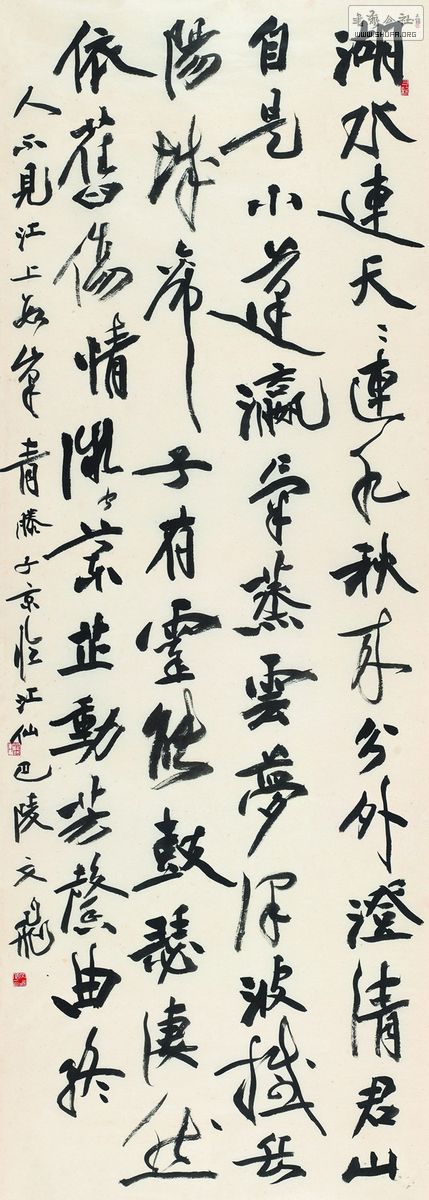 湖水連天天連水秋來分外澄清君山
自是小蓬瀛氣蒸雲夢澤波撼岳
陽城帝子有靈能鼓瑟淒然
依舊傷情微聞蘭芷動芳馨曲終
人不見江上數峯青滕子京臨江仙巴陵文
WWW.SHUFA.ORG